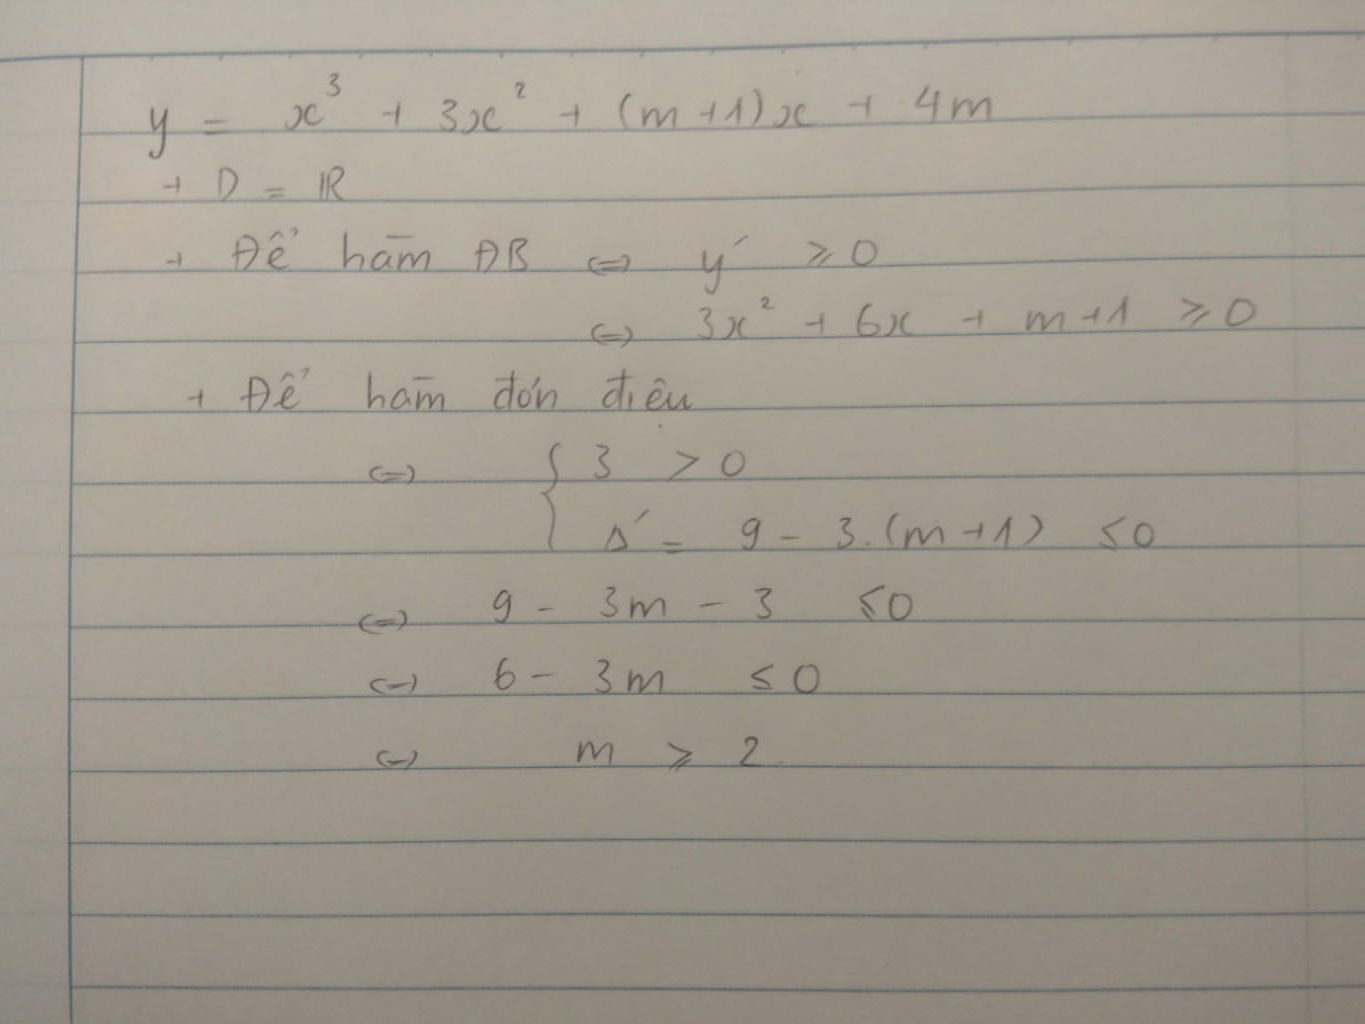 y = x³ + 3x² + (m+1)x + 4m
+ D = ℝ
+ Để hàm ĐB ⇔ y' ≥ 0
⇔ 3x² + 6x + m+1 ≥ 0
+ Để hàm đơn điệu
⇔ { 3 > 0
Δ' = 9 - 3.(m+1) ≤ 0
⇔ 9 - 3m - 3 ≤ 0
⇔ 6 - 3m ≤ 0
⇔ m ≥ 2.